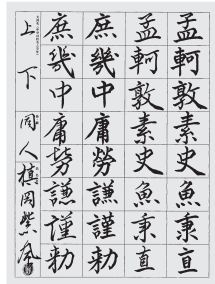 孟軻敦素史魚秉直
孟軻敦素史魚秉直
庶幾中庸勞謙謹勅
庶幾中庸勞謙謹勅
上下
同人 岡紫風